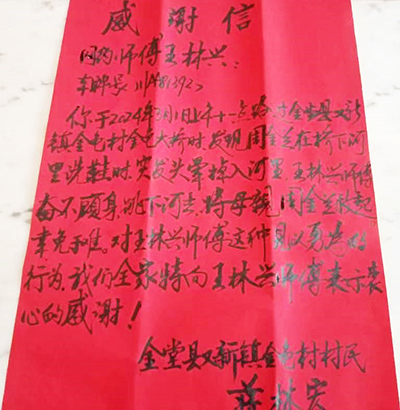 感谢信
网约师傅王林兴:
车牌号川A
你于2024年3月1日上午十一点路过金堂县又新
镇金屯村金屯大桥时发现周金兰在桥下河
里洗鞋时突发头晕掉入河里,王林兴师傅
奋不顾身跳下河去,将母亲周金兰救起
幸免和难。对王林兴师傅这种见义勇为的
行为,我们全家特向王林兴师傅表示衷
心的感谢!
金堂县又新镇金屯村村民
蒋林宏